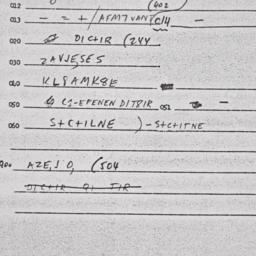 012 (402
013 - = + / AFM7VAN (C/4 -
020 DICTIR (244
030 ZAVJESES
040 KL8AMK8E
050 C1-EPENEN DITBIR 052 -
060 S+C+ILNE ) - S+C+ITNE
AZE, J O, (504
DICTIR QI TIR